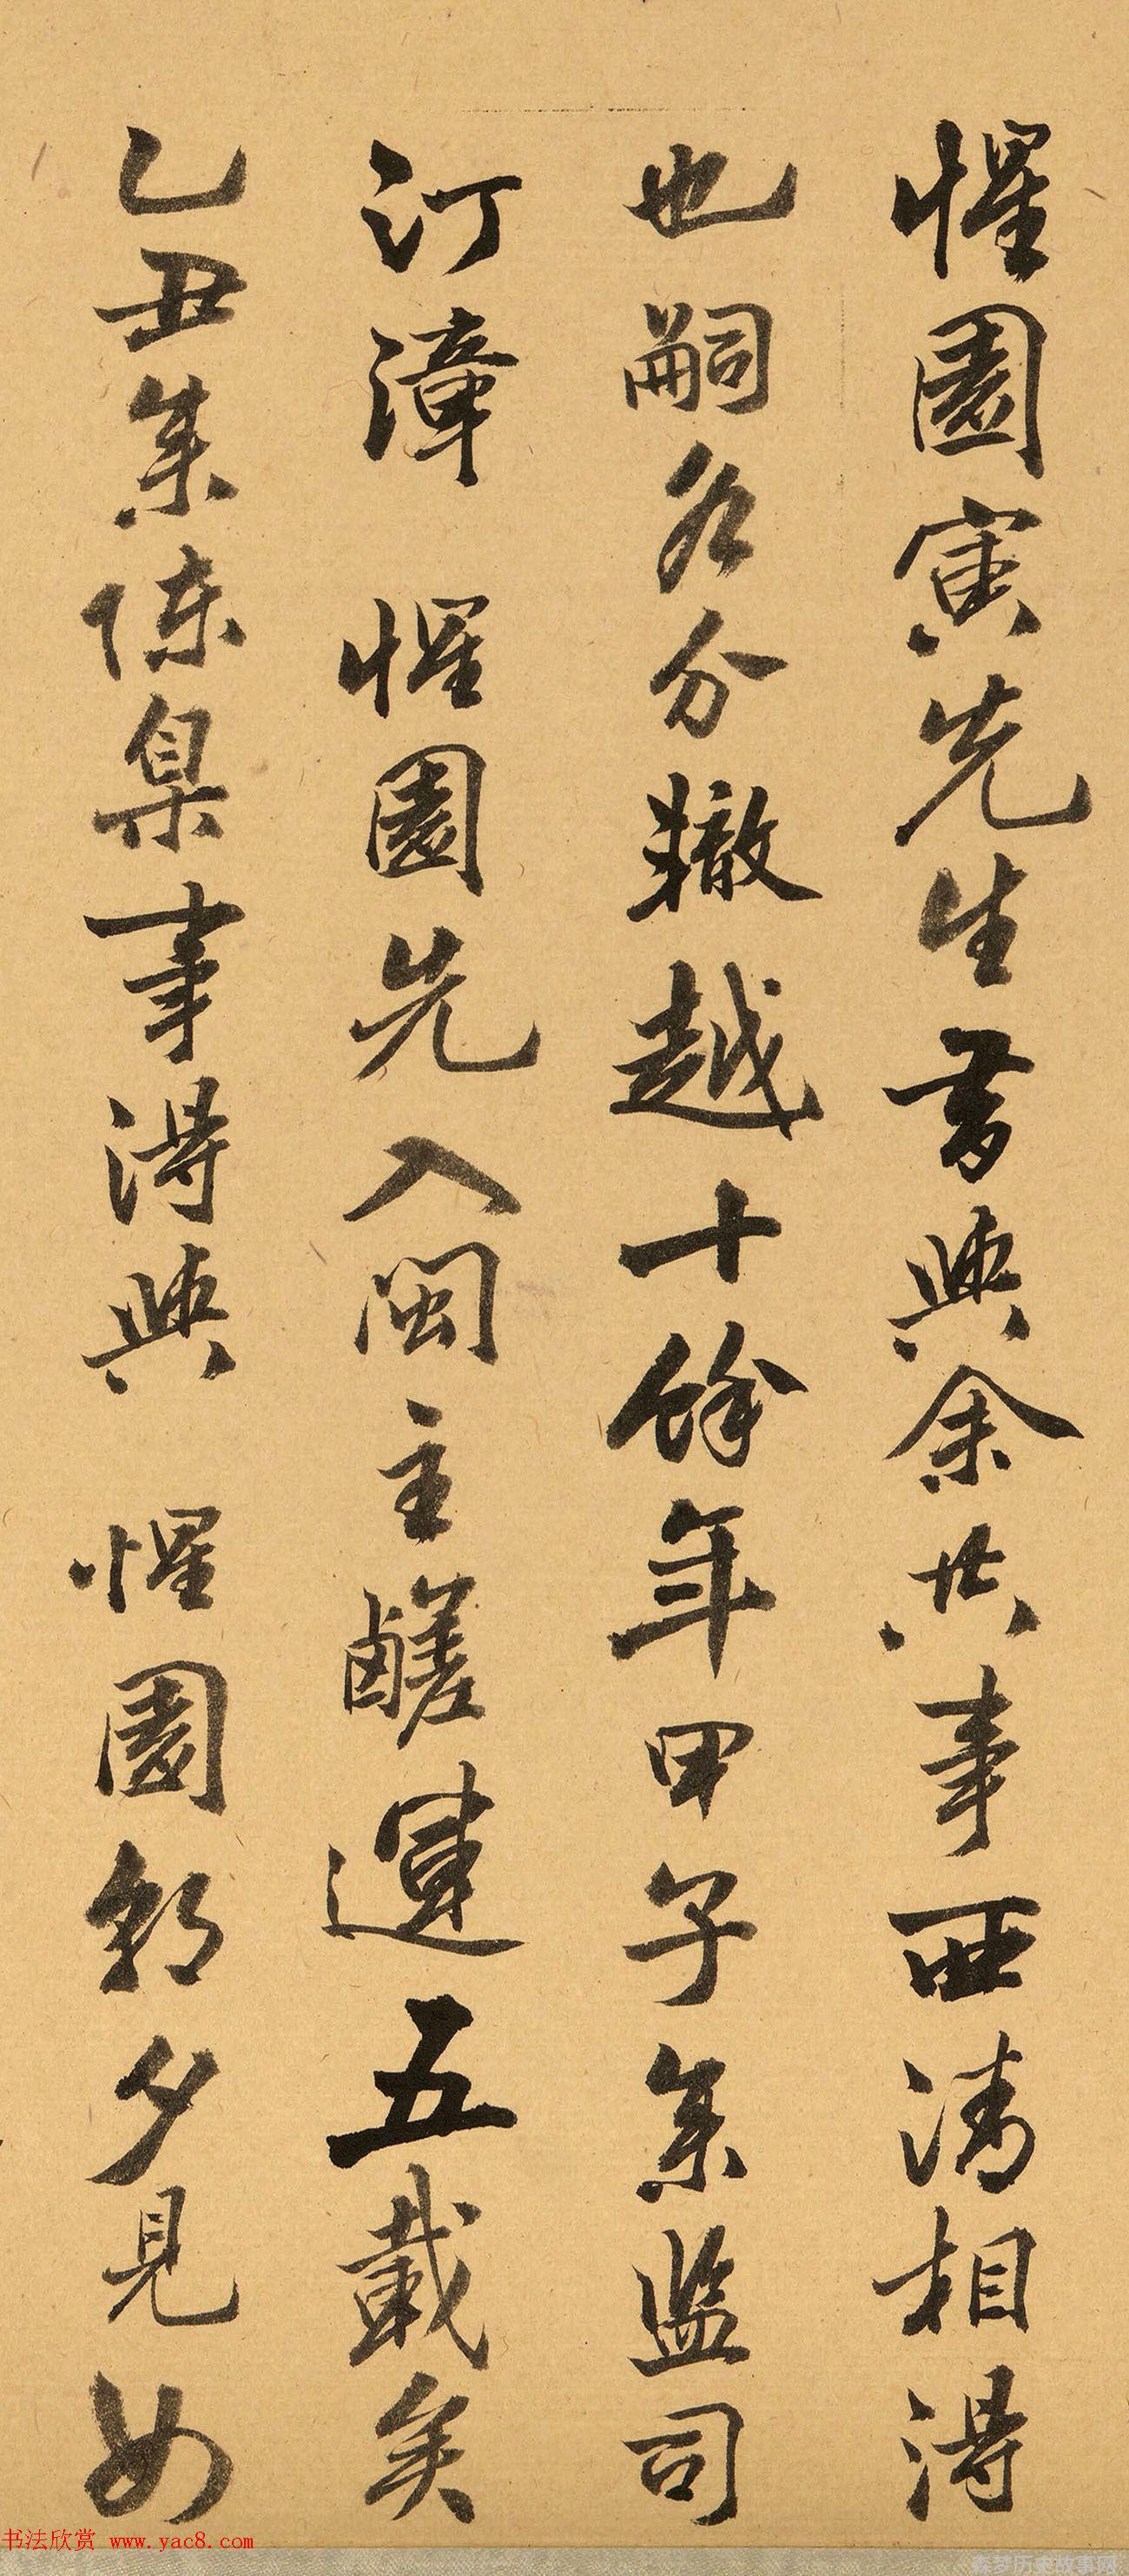 惺園寅先生昔與余共事西清相得
也嗣各分轍越十餘年甲子余監司
汀漳 惺園先入閩主鹺運五載矣
乙丑余陳臬事得與 惺園朝夕見如
书法欣赏 www.yac8.com